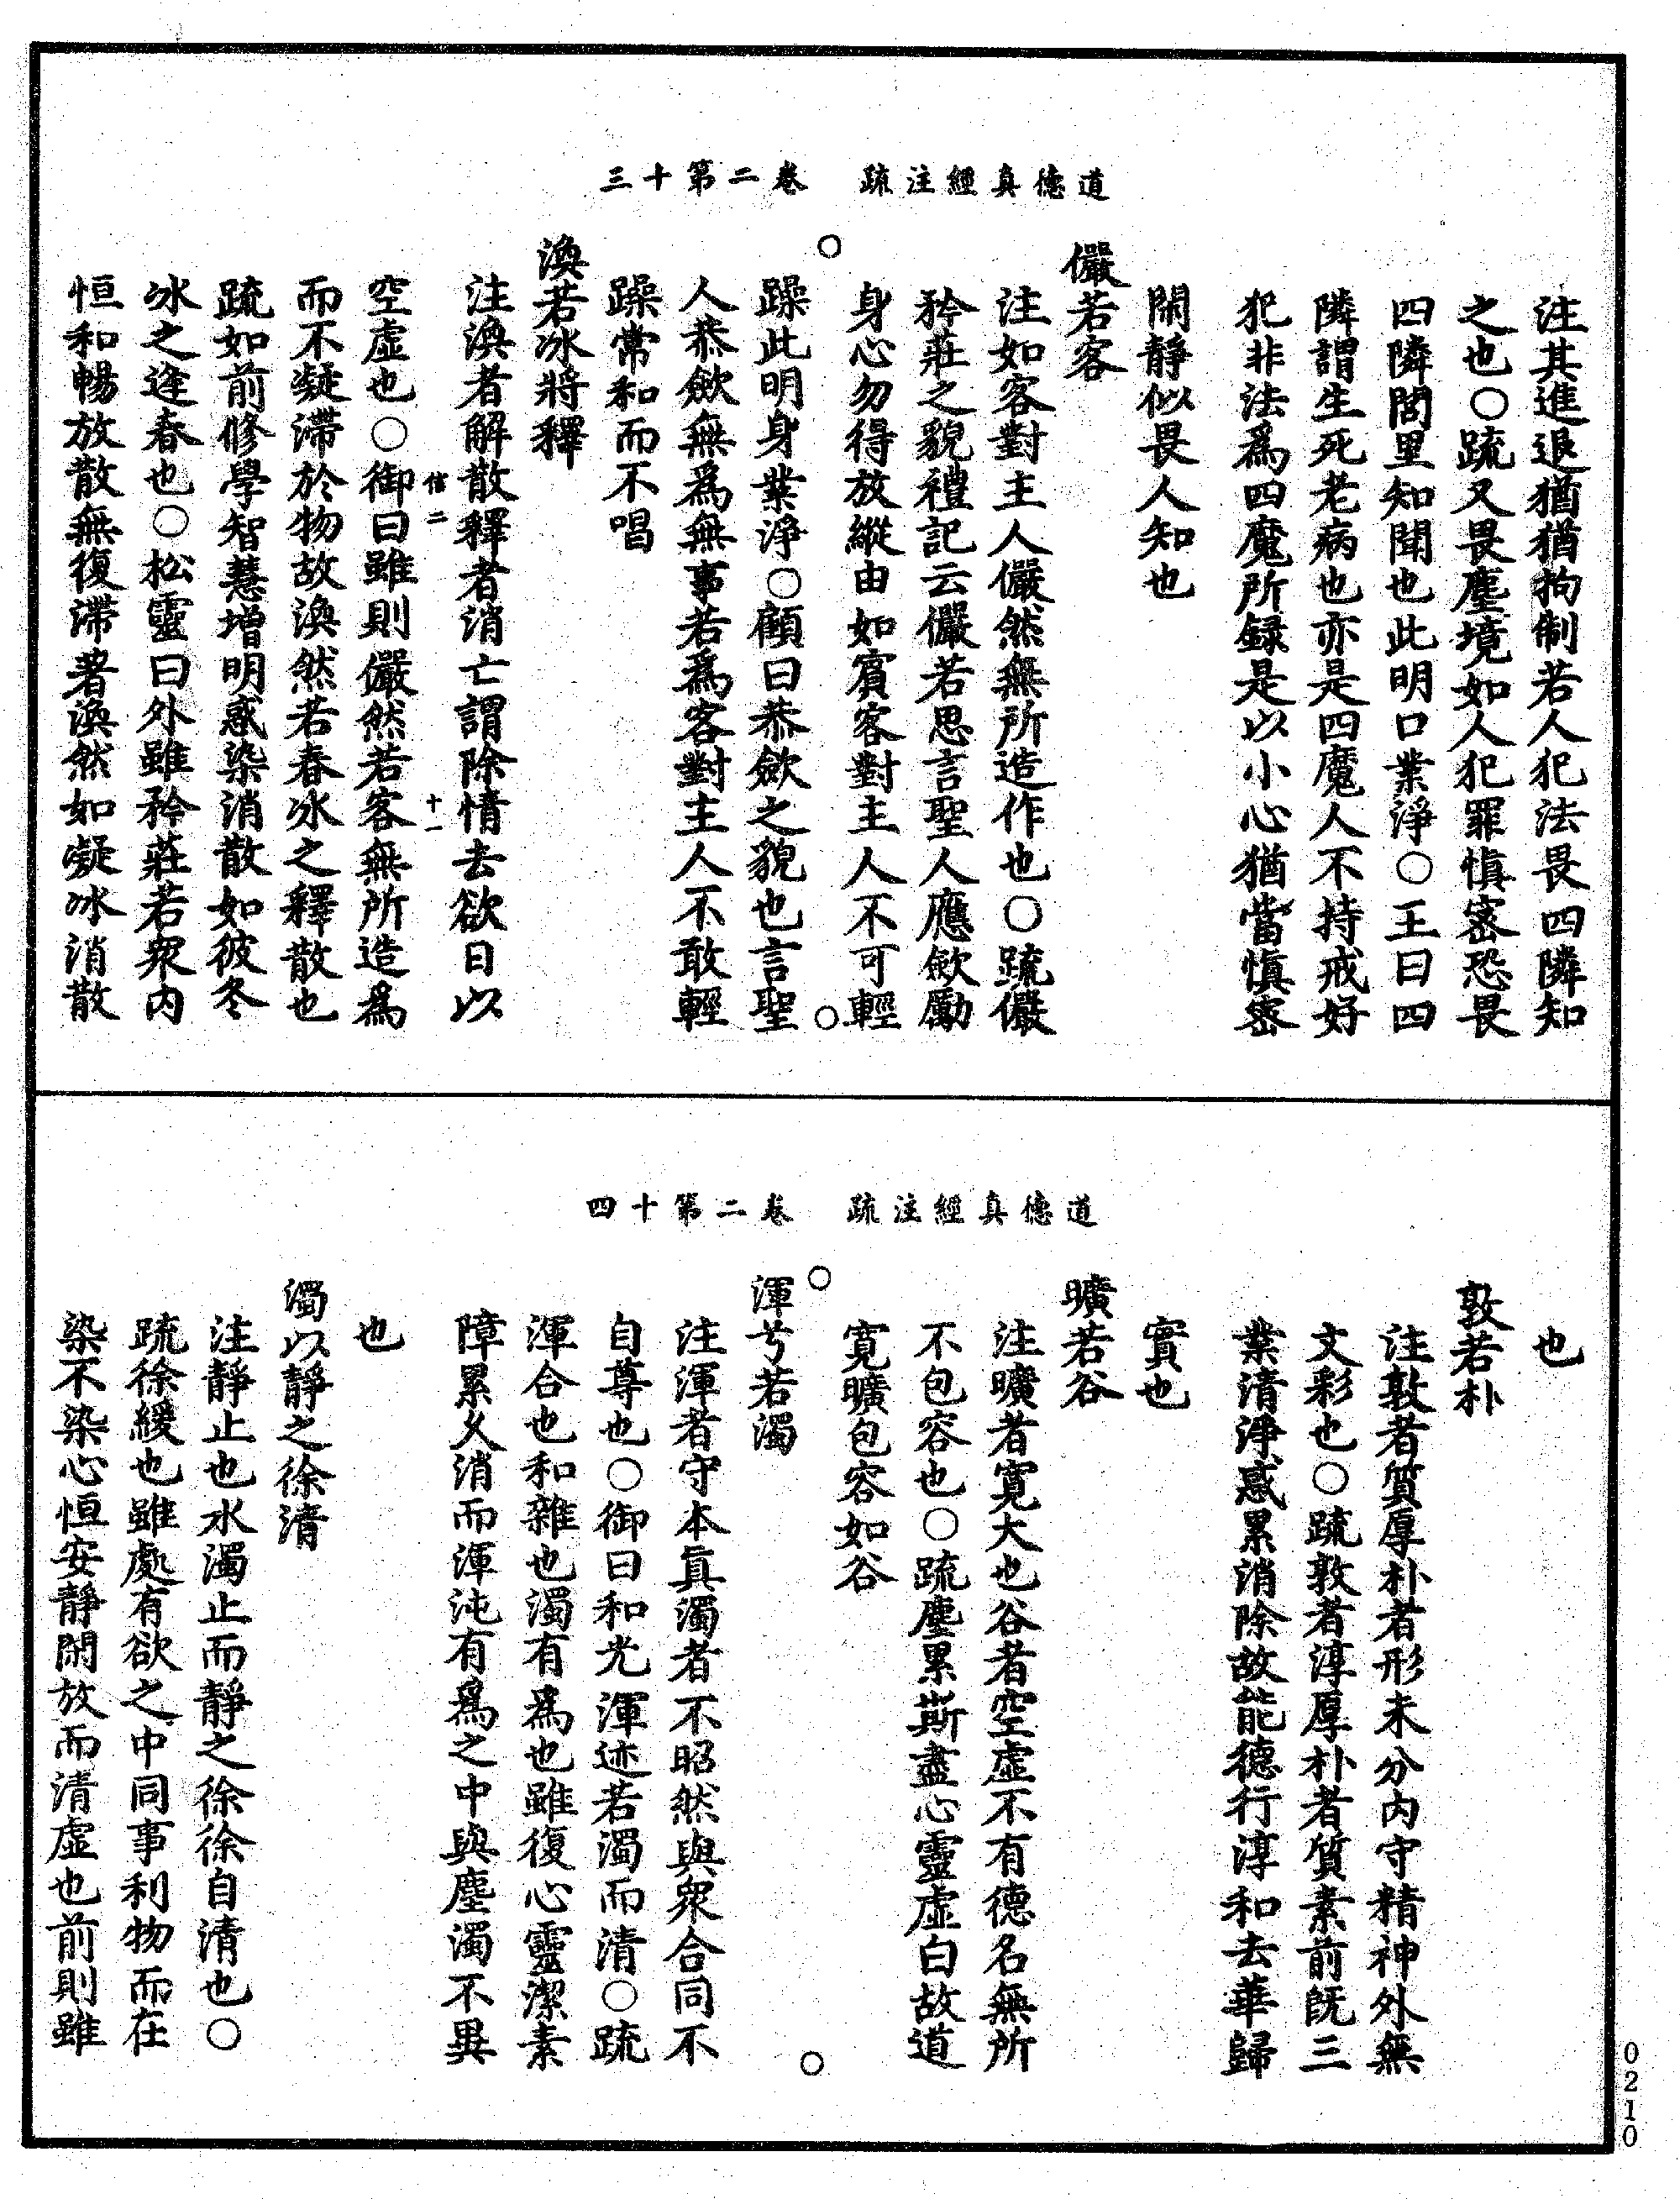 道德真經注疏　卷二第十三
注其進退猶猶拘制若人犯法畏四隣知
之也○疏又畏塵境如人犯罪慎密恐畏
四隣閭里知聞也此明口業淨○王曰四
隣謂生死老病也亦是四魔人不持戒好
犯非法爲四魔所録是以小心猶當慎密
閑靜似畏人知也
儼若客
注如客對主人儼然無所造作也○疏儼
矜莊之貌禮記云儼若思言聖人應斂勵
身心勿得放縱由如賓客對主人不可輕
躁此明身業淨○顧曰恭斂之貌也言聖
人恭斂無爲無事若爲客對主人不敢輕
躁常和而不唱
渙若冰將釋
注渙者解散釋者消亡謂除情去欲日以
信二　十一
空虛也○御曰雖則儼然若客無所造爲
而不凝滯於物故渙然若春冰之釋散也
疏如前修學智慧增明惑染消散如彼冬
冰之逢春也○松靈曰外雖矜莊若衆内
恒和暢放散無復滯著渙然如凝冰消散
道德真經注疏　卷二第十四
也
敦若朴
注敦者質厚朴者形未分内守精神外無
文彩也○疏敦者淳厚朴者質素前既三
業清淨惑累消除故能德行淳和去華歸
實也
曠若谷
注曠者寬大也谷者空虛不有德名無所
不包容也○疏塵累斯盡心靈虛白故道
寬曠包容如谷
渾兮若濁
注渾者守本眞濁者不昭然與衆合同不
自尊也○御曰和光渾迹若濁而清○疏
渾合也和雜也濁有爲也雖復心靈潔素
障累久消而渾沌有爲之中與塵濁不異
也
濁以靜之徐清
注靜止也水濁止而靜之徐徐自清也○
疏徐緩也雖處有欲之中同事利物而在
染不染心恒安靜閑放而清虛也前則雖
0210